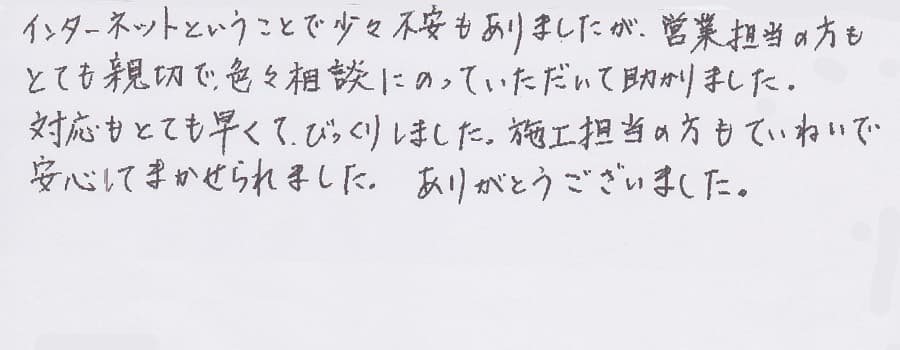 インターネットということで少々不安もありましたが、営業担当の方も
とても親切で、色々相談にのっていただいて助かりました。
対応もとても早くて、びっくりしました。施工担当の方もていねいで
安心してまかせられました。 ありがとうございました。